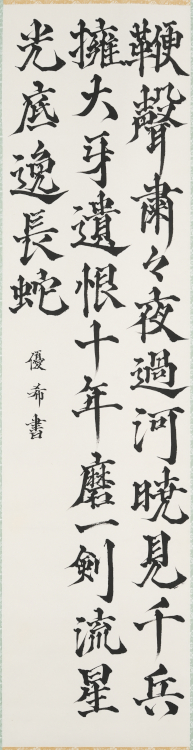 鞭聲肅々夜過河暁見千兵
擁大牙遺恨十年磨一剣流星
光底逸長蛇
優希書